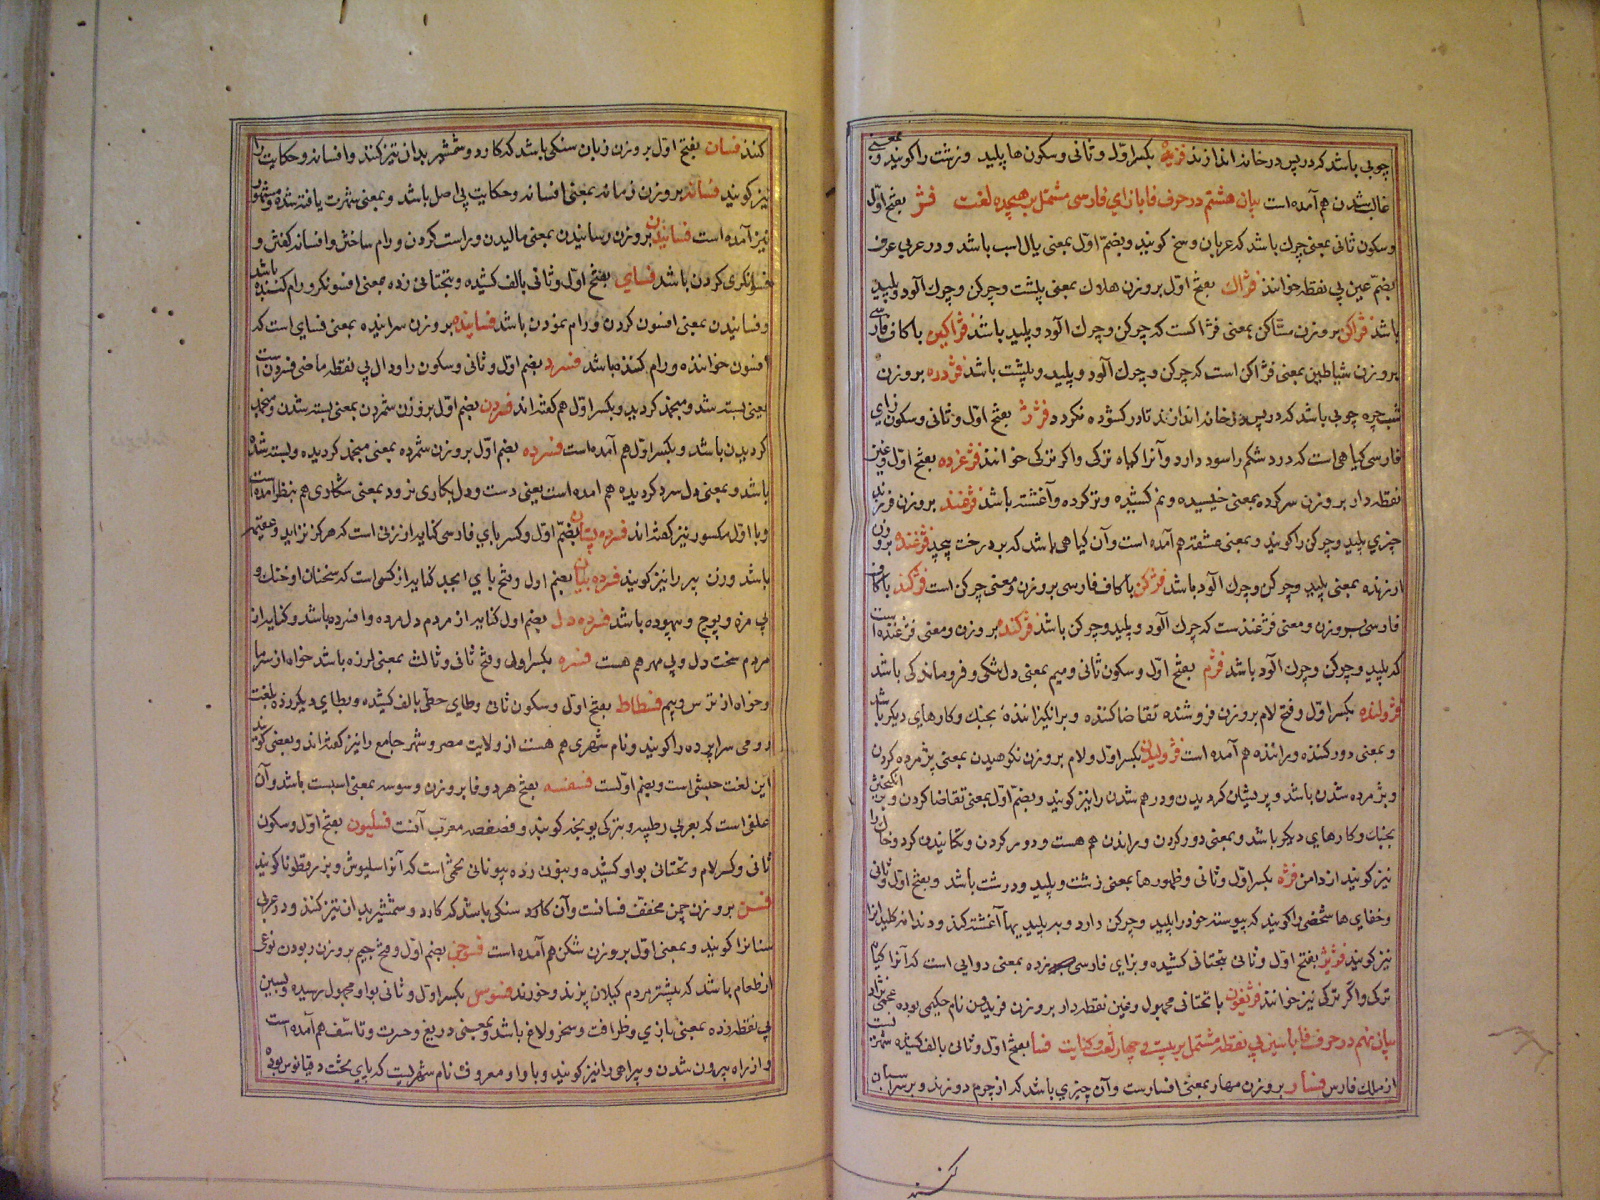 چوبی باشد که در پس در خانه اندازند فژه بکسر اول و ثانی و سکون ها پلید و زشت را گویند و بمعنی
غالب شدن هم آمده است بیان هشتم در حرف فا با زای فارسی مشتمل بر هیجده لغت فژ بفتح اول
و سکون ثانی بمعنی چرک باشد که عربان وسخ گویند و بضم اول بمعنی یال اسب باشد و در عربی عرف
بضم عین بی نقطه خوانند فژاک بفتح اول بر وزن هلاک بمعنی پلشت و چرکن و چرک آلود و پلید
باشد فژاکن بر وزن ستاکن بمعنی فژاکست که چرکن و چرک آلود و پلید باشد فژاکین با کاف فارسی
بر وزن شیاطین بمعنی فژاکن است که چرکن و چرک آلود و پلید و پلشت باشد فژدره بر وزن
شب چره چوبی باشد که در پس در خانه اندازند تا در کشوده نگردد فژژ بفتح اول و ثانی و سکون زای
فارسی گیاهی است که درد شکم را سود دارد و آنرا گیاه ترکی و اگر ترکی خوانند فژغرده بفتح اول و غین
نقطه دار بر وزن سرکرده بمعنی خیسیده و نم کشیده و تر کرده و آغشته باشد فژغند بر وزن فرزند
چیزی پلید و چرکن را گویند و بمعنی عشقه هم آمده است و آن گیاهی باشد که بر درخت پیچد فژغنده بر وزن
ارزنده بمعنی پلید و چرکن و چرک آلود باشد فژکن با کاف فارسی بر وزن و معنی چرکن است فژکند با کاف
فارسی بر وزن و معنی فژغندست که چرک آلود و پلید و چرکن باشد فژکنده بر وزن و معنی فژغنده است
که پلید و چرکن و چرک آلود باشد فژم بفتح اول و سکون ثانی و میم بمعنی دل تنگی و فروماندگی باشد
فژولنده بکسر اول و فتح لام بر وزن فروشنده تقاضا کننده و برانگیزاننده بجنگ و کارهای دیگر باشد
و بمعنی دور کننده و راننده هم آمده است فژولیدن بکسر اول و لام بر وزن نکوهیدن بمعنی پژمرده کردن
و پژمرده شدن باشد و پریشان گردیدن و درهم شدن را نیز گویند و بضم اول بمعنی تقاضا کردن و برانگیختن
بجنگ و کارهای دیگر باشد و بمعنی دور کردن و راندن هم هست و دور کردن و تکانیدن گرد و خاک را
نیز گویند از دامن فژه بکسر اول و ثانی و ظهور ها بمعنی زشت و پلید و درشت باشد و بفتح اول و ثانی
و خفای ها شخصی را گویند که پیوسته خود را پلید و چرکن دارد و به پلیدیها آغشته کند و دندانه کلید را
نیز گویند فژیژ بفتح اول و ثانی بتحتانی کشیده و بزای فارسی زده بمعنی دوایی است که آنرا گیاه
ترکی و اگر ترکی نیز خوانند فژیغون با تحتانی مجهول و غین نقطه دار بر وزن فریدون نام حکیمی بوده عجمی نژاد
بیان نهم در حرف فا با سین بی نقطه مشتمل بر بیست و چهار لغت و کنایت فسا بفتح اول و ثانی بالف کشیده شهریست
از ملک فارس فسار بر وزن مهار بمعنی افسارست و آن چیزی باشد که از چرم دوزند و بر سر اسبان
کنند
کنند فسان بفتح اول بر وزن زبان سنگی باشد که کارد و شمشیر بدان تیز کنند و افسانه و حکایت را
نیز گویند فسانه بر وزن زمانه بمعنی افسانه و حکایت بی اصل باشد و بمعنی شهرت یافته شده و مشهور
نیز آمده است فسانیدن بر وزن رسانیدن بمعنی مالیدن و راست کردن و رام ساختن و افسانه گفتن و
افسونگری کردن باشد فسای بفتح اول و ثانی بالف کشیده و بتحتانی زده بمعنی افسونگر و رام کننده باشد
و فسانیدن بمعنی افسون کردن و رام نمودن باشد فساینده بر وزن سراینده بمعنی فسای است که
افسون خواننده و رام کننده باشد فسرد بضم اول و ثانی و سکون را و دال بی نقطه ماضی فسردن است
یعنی بسته شد و منجمد گردید و بکسر اول هم گفته اند فسردن بضم اول بر وزن شمردن بمعنی بسته شدن و منجمد
گردیدن باشد و بکسر اول هم آمده است فسرده بضم اول بر وزن شمرده بمعنی منجمد گردیده و بسته شده
باشد و بمعنی دل سرد گردیده هم آمده است یعنی دست و دل بکاری نرود بمعنی شکاری هم بنظر آمده است
و با اول مکسور نیز گفته اند فسرده پستان بضم اول و کسر بای فارسی کنایه از زنی است که هرگز نزاید و عقیم
باشد و زن پیر را نیز گویند فسرده بیان بضم اول و فتح بای ابجد کنایه از کسی است که سخنان او خنک و
بی مزه و پوچ و بیهوده باشد فسرده دل بضم اول کنایه از مردم دل مرده و افسرده باشد و کنایه از
مردم سخت دل و بی مهر هم هست فسره بکسر اول و فتح ثانی و ثالث بمعنی لرزه باشد خواه از سرما
و خواه از ترس و بیم فسطاط بفتح اول و سکون ثانی و طای حطی بالف کشیده و بطای دیگر زده بلغت
رومی سراپرده را گویند و نام شهری هم هست از ولایت مصر و شهر جامع را نیز گفته اند و بعضی گویند
این لغت حبشی است و بضم اولست فسفسه بفتح هر دو فا بر وزن وسوسه بمعنی اسپست باشد و آن
علفی است که بعربی رطبه و بترکی یونجه گویند و فصفصه معرب آنست فسلیون بفتح اول و سکون
ثانی و کسر لام و تحتانی بواو کشیده و بنون زده بیونانی تخمی است که آنرا اسلیوش و بزرقطونا گویند
فسن بر وزن چمن مخفف فسانست و آن سنگی باشد که کارد و شمشیر بدان تیز کنند و در عربی
سنانرا گویند و بمعنی اول بر وزن شکن هم آمده است فسوجن بضم اول و فتح جیم بر وزن ربودن نوعی
از طعام باشد که بیشتر مردم گیلان پزند و خورند فسوس بکسر اول و ثانی بواو مجهول رسیده و بسین
بی نقطه زده بمعنی بازی و ظرافت و سخر و لاغ باشد و بمعنی دریغ و حسرت و تاسف هم آمده است
و از راه بیرون شدن و بیراهی را نیز گویند و با واو معروف نام شهریست که پای تخت دقیانوس بوده